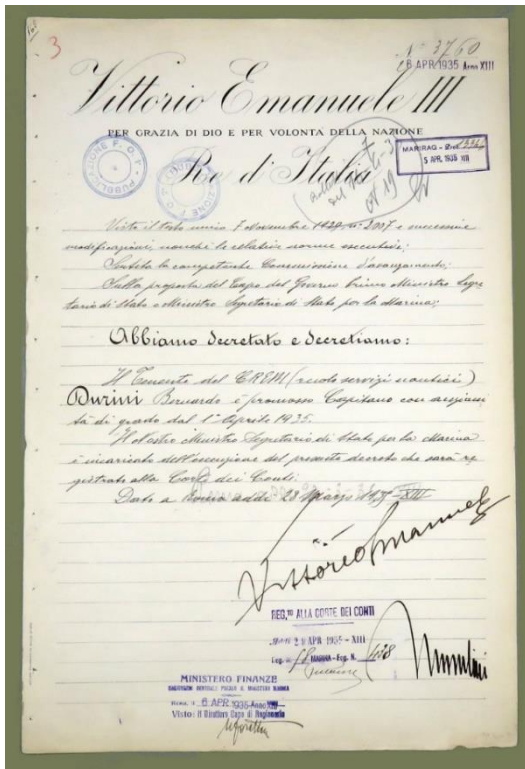 3
N° 3760
6 APR 1935 Anno XIII
Vittorio Emanuele III
PER GRAZIA DI DIO E PER VOLONTÀ DELLA NAZIONE
Re d'Italia
PUBBLICAZIONE F. O. P.
MARIRAG
5 APR. 1935 XIII
Visto il testo unico 7 Novembre 1929 n° 2007 e successive
modificazioni, nonchè le relative norme esecutive;
Sentita la competente Commissione d'avanzamento;
Sulla proposta del Capo del Governo Primo Ministro Segre
tario di Stato e Ministro Segretario di Stato per la Marina;
Abbiamo decretato e decretiamo:
Il Tenente del CREM (ruolo servizi nautici)
Durini Bernardo è promosso Capitano con anziani
tà di grado dal 1° Aprile 1935.
Il nostro Ministro Segretario di Stato per la Marina
è incaricato dell'esecuzione del presente decreto che sarà re
gistrato alla Corte dei Conti.
Dato a Roma addì 28 Marzo 1935-XIII
Vittorio Emanuele
REG.TO ALLA CORTE DEI CONTI
APR 1935 - XIII
MARINA - Fog. N.
Mussolini
MINISTERO FINANZE
Roma, 6 APR 1935 Anno XIII
Visto: Il Direttore Capo di Ragioneria